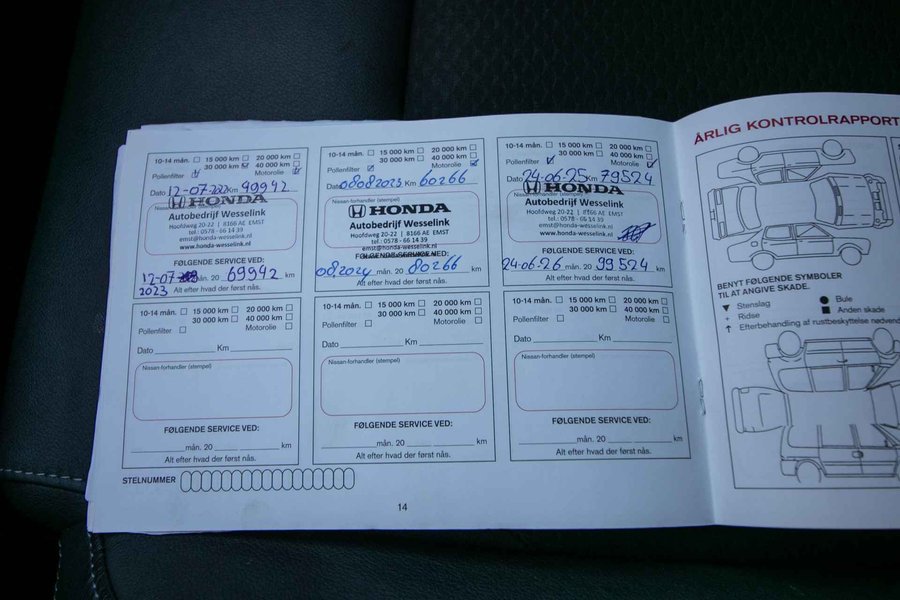 10-14 mån. 15 000 km 20 000 km
30 000 km 40 000 km
Pollenfilter Motorolie
Dato 12-07- Km
HONDA
Autobedrijf Wesselink
Hoofdweg 20-22 | 8166 AE EMST
tel.: 0578 - 66 14 39
emst@honda-wesselink.nl
www.honda-wesselink.nl
FØLGENDE SERVICE VED:
12-07 mån. 20 69942 km
2023 Alt efter hvad der først nås.
10-14 mån. 15 000 km 20 000 km
30 000 km 40 000 km
Pollenfilter Motorolie
Dato 08082023 Km 60266
Nissan-forhandler (stempel)
HONDA
Autobedrijf Wesselink
Hoofdweg 20-22 | 8166 AE EMST
tel.: 0578 - 66 14 39
emst@honda-wesselink.nl
FØLGENDE SERVICE VED:
082024 mån. 20 80266 km
Alt efter hvad der først nås.
10-14 mån. 15 000 km 20 000 km
30 000 km 40 000 km
Pollenfilter Motorolie
Dato 24-06-25 Km 79524
HONDA
Autobedrijf Wesselink
Hoofdweg 20-22 | 8166 AE EMST
tel.: 0578 - 66 14 39
emst@honda-wesselink.nl
www.honda-wesselink.nl
FØLGENDE SERVICE VED:
24-06-26 mån. 20 99524 km
Alt efter hvad der først nås.
10-14 mån. 15 000 km 20 000 km
30 000 km 40 000 km
Pollenfilter Motorolie
Dato Km
Nissan-forhandler (stempel)
FØLGENDE SERVICE VED:
mån. 20 km
Alt efter hvad der først nås.
10-14 mån. 15 000 km 20 000 km
30 000 km 40 000 km
Pollenfilter Motorolie
Dato Km
Nissan-forhandler (stempel)
FØLGENDE SERVICE VED:
mån. 20 km
Alt efter hvad der først nås.
10-14 mån. 15 000 km 20 000 km
30 000 km 40 000 km
Pollenfilter Motorolie
Dato Km
Nissan-forhandler (stempel)
FØLGENDE SERVICE VED:
mån. 20 km
Alt efter hvad der først nås.
STELNUMMER
14
ÅRLIG KONTROLRAPPORT
BENYT FØLGENDE SYMBOLER
TIL AT ANGIVE SKADE.
Stenslag Bule
Ridse Anden skade
Efterbehandling af rustbeskyttelse